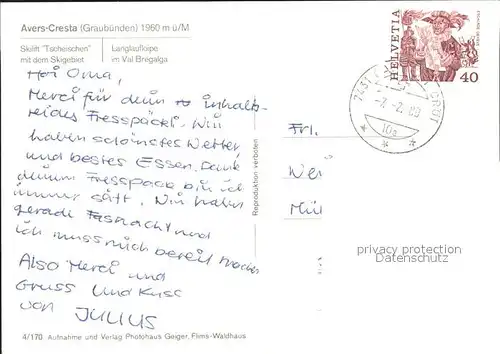 Avers-Cresta (Graubünden) 1960 m ü/M
Skilift "Tscheischen"
mit dem Skigebiet
Langlaufloipe
im Val Bregalga
Hoi Oma,
Merci für dein inhalt-
reiches Fresspäckli. Wir
haben schönstes Wetter
und bestes Essen. Dank
deinem Fresspack bin ich
immer satt. Wir haben
gerade Fasnacht und
ich muss mich bereit machen
Also Merci und
Gruss und Kuss
von JULIUS
4/170 Aufnahme und Verlag Photohaus Geiger, Flims-Waldhaus
Reproduktion verboten
HELVETIA
40
7431
10a
Frl.
privacy protection
Datenschutz